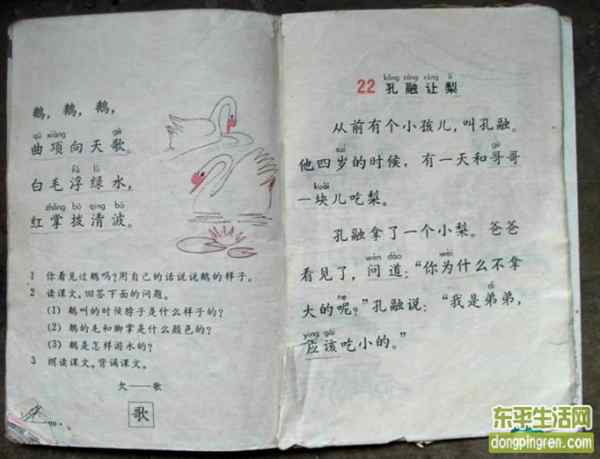 鹅，鹅，鹅，
qū xiàng gē
曲项向天歌。
fú lǜ
白毛浮绿水，
zhǎng bō qīng bō
红掌拨清波。
1 你看见过鹅吗？用自己的话说说鹅的样子。
2 读课文，回答下面的问题。
(1) 鹅叫的时候脖子是什么样子的？
(2) 鹅的毛和脚掌是什么颜色的？
(3) 鹅是怎样游水的？
3 朗读课文。背诵课文。
欠——歌
歌
kǒng róng ràng lí
22 孔融让梨
从前有个小孩儿，叫孔融。
suì gē
他四岁的时候，有一天和哥哥
kuài
一块儿吃梨。
孔融拿了一个小梨。爸爸
wèn dào wèi
看见了，问道：“你为什么不拿
ne dì
大的呢？”孔融说：“我是弟弟，
yīng gāi
应该吃小的。”
东平生活网
dongpingren.com